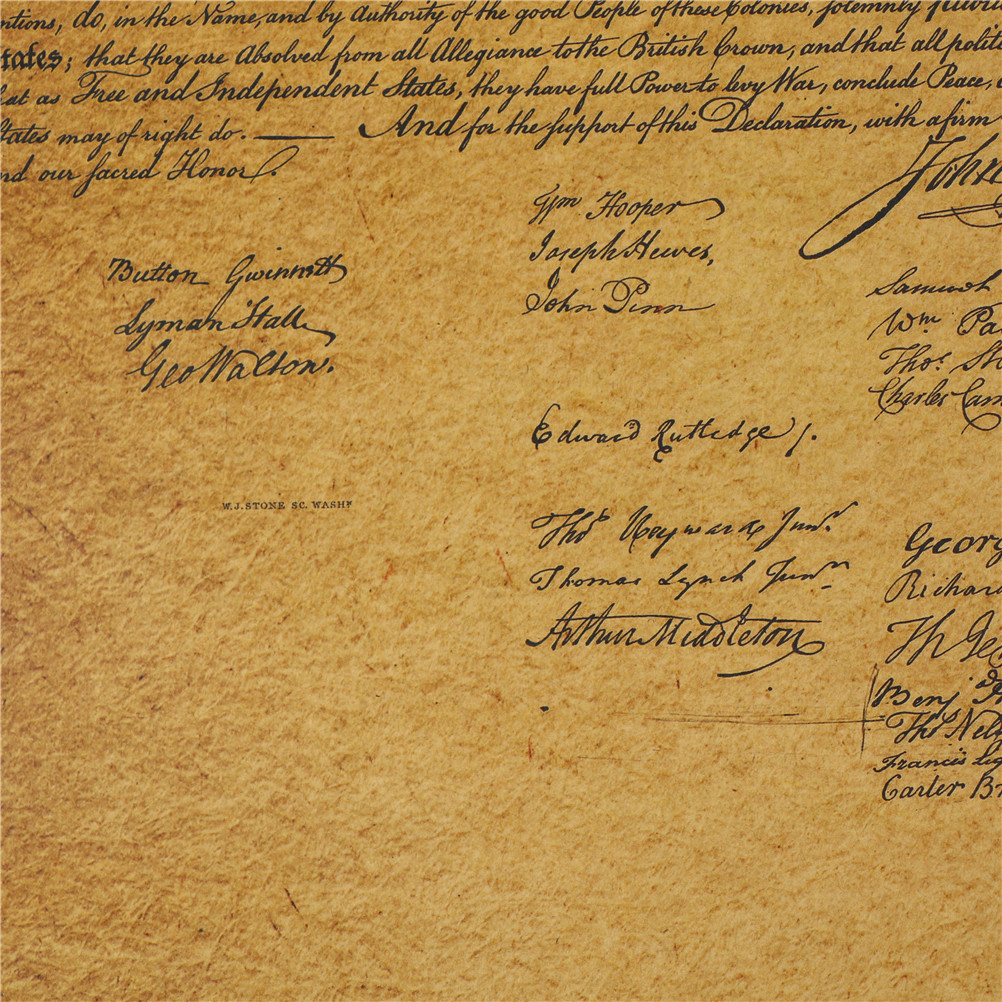 ntions, do, in the Name, and by Authority of the good People of these Colonies, solemnly publi
tates; that they are Absolved from all Allegiance to the British Crown, and that all polit
hat as Free and Independent States, they have full Power to levy War, conclude Peace,
States may of right do. — And for the support of this Declaration, with a firm
nd our sacred Honor.
John
Wm Hooper
Joseph Hewes,
John Penn
Button Gwinnett
Lyman Hall
Geo Walton.
Samuel
Wm Pa
Thos. Sto
Charles Carr
Edward Rutledge /.
W. J. STONE SC. WASHN.
Thos Heyward Junr.
Thomas Lynch Junr.
Arthur Middleton
George
Richard
Th Jef
Benj Ha
Thos Nels
Francis Lig
Carter Br